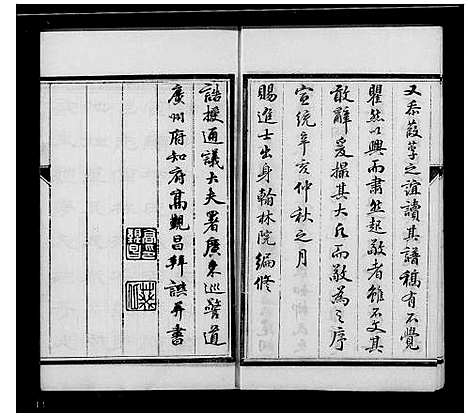 又忝葭莩之誼讀其譜稿有不覺
瞿然以興而肅然起敬者雖不文其
敢辭爰撮其大凡而敬為之序
宣統辛亥仲秋之月
賜進士出身翰林院編修
誥授通議大夫署廣東巡警道
廣州府知府高覲昌拜譔并書